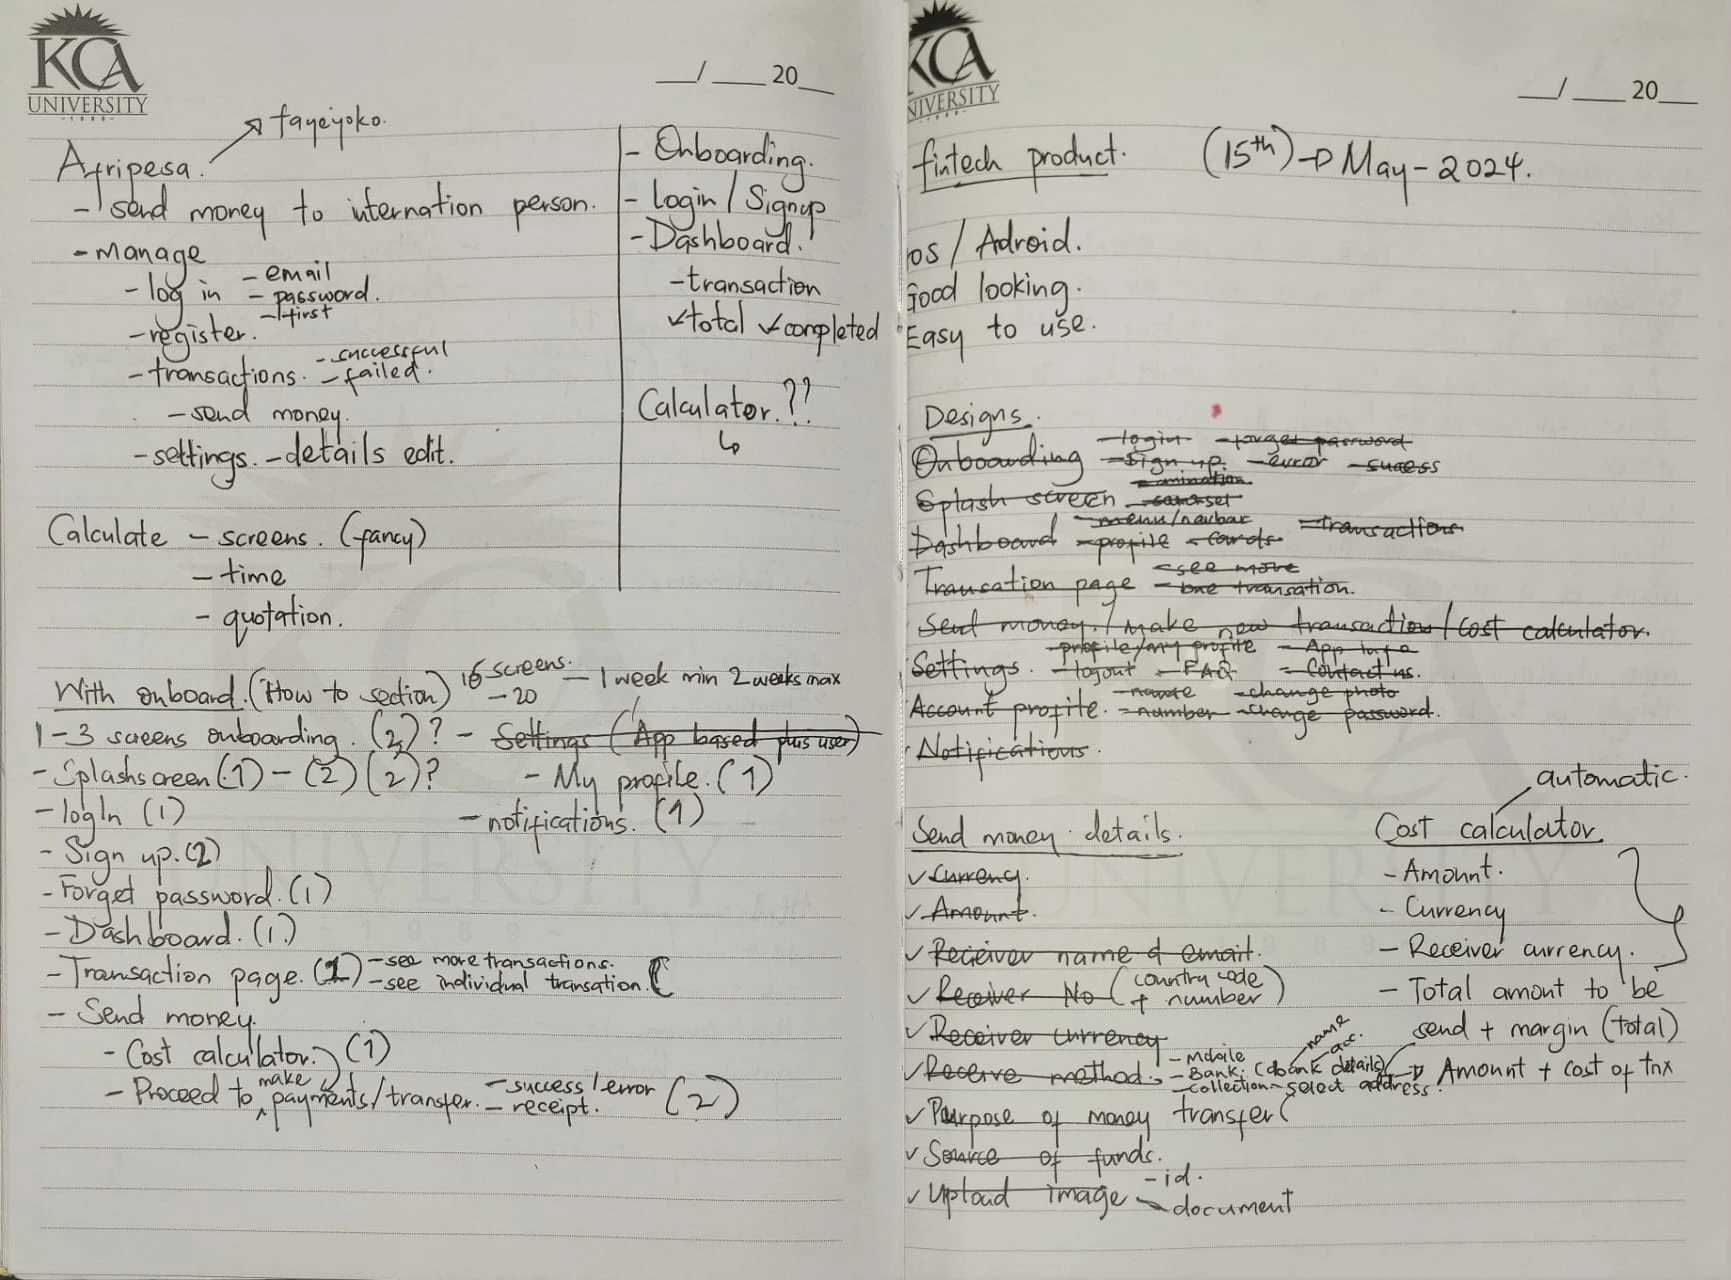 KCA
UNIVERSITY
-1989-
__/___20__
tayeyoko.
Afripesa.
- send money to internation person.
- manage
- log in - email
- password.
- first
- register.
- transactions. - successful
- failed.
- send money.
- settings. - details edit.
Calculate - screens. (fancy)
- time
- quotation.
- Onboarding.
- Login / Signup
- Dashboard.
- transaction
✓total ✓completed
Calculator.??
↳
With onboard. (How to section) 16 screens. - 1 week min 2 weeks max
- 20
1-3 screens onboarding. (2)? - Settings (App based plus user)
- Splashscreen (1) - (2) (2)? - My profile. (1)
- logIn (1) - notifications. (1)
- Sign up. (2)
- Forget password. (1)
- Dashboard. (1)
- Transaction page. (1) - see more transactions.
- see individual transation.
- Send money.
- Cost calculator. (1)
- Proceed to make payments/transfer. - success/error (2)
- receipt.
KCA
NIVERSITY
__/___20__
fintech product. (15th) → May - 2024.
ios / Adroid.
Good looking.
Easy to use.
Designs.
Onboarding - login - forget password
- Sign up. - error - sucess
Splash screen
Dashboard - menu/navbar - transactions
- profile - cards
Transation page - see more
- one transation.
Send money. / Make new transaction / Cost calculator.
Settings. - profile/my profite - App info
- logout - FAQ - Contact us.
Account profile. - name - change photo
- number - change password.
Notifications.
Send money details.
✓ Currency.
✓ Amount.
✓ Receiver name & email.
✓ Receiver No (country code + number)
✓ Receiver currency
✓ Receive method. - Mobile
- Bank. (bank details) name acc.
- collection - select address.
✓ Purpose of money transfer (
✓ Source of funds.
✓ Upload image - id.
- document
automatic.
Cost calculator
- Amount.
- Currency
- Receiver currency.
- Total amont to be
send + margin (total)
→ Amount + cost of tnx